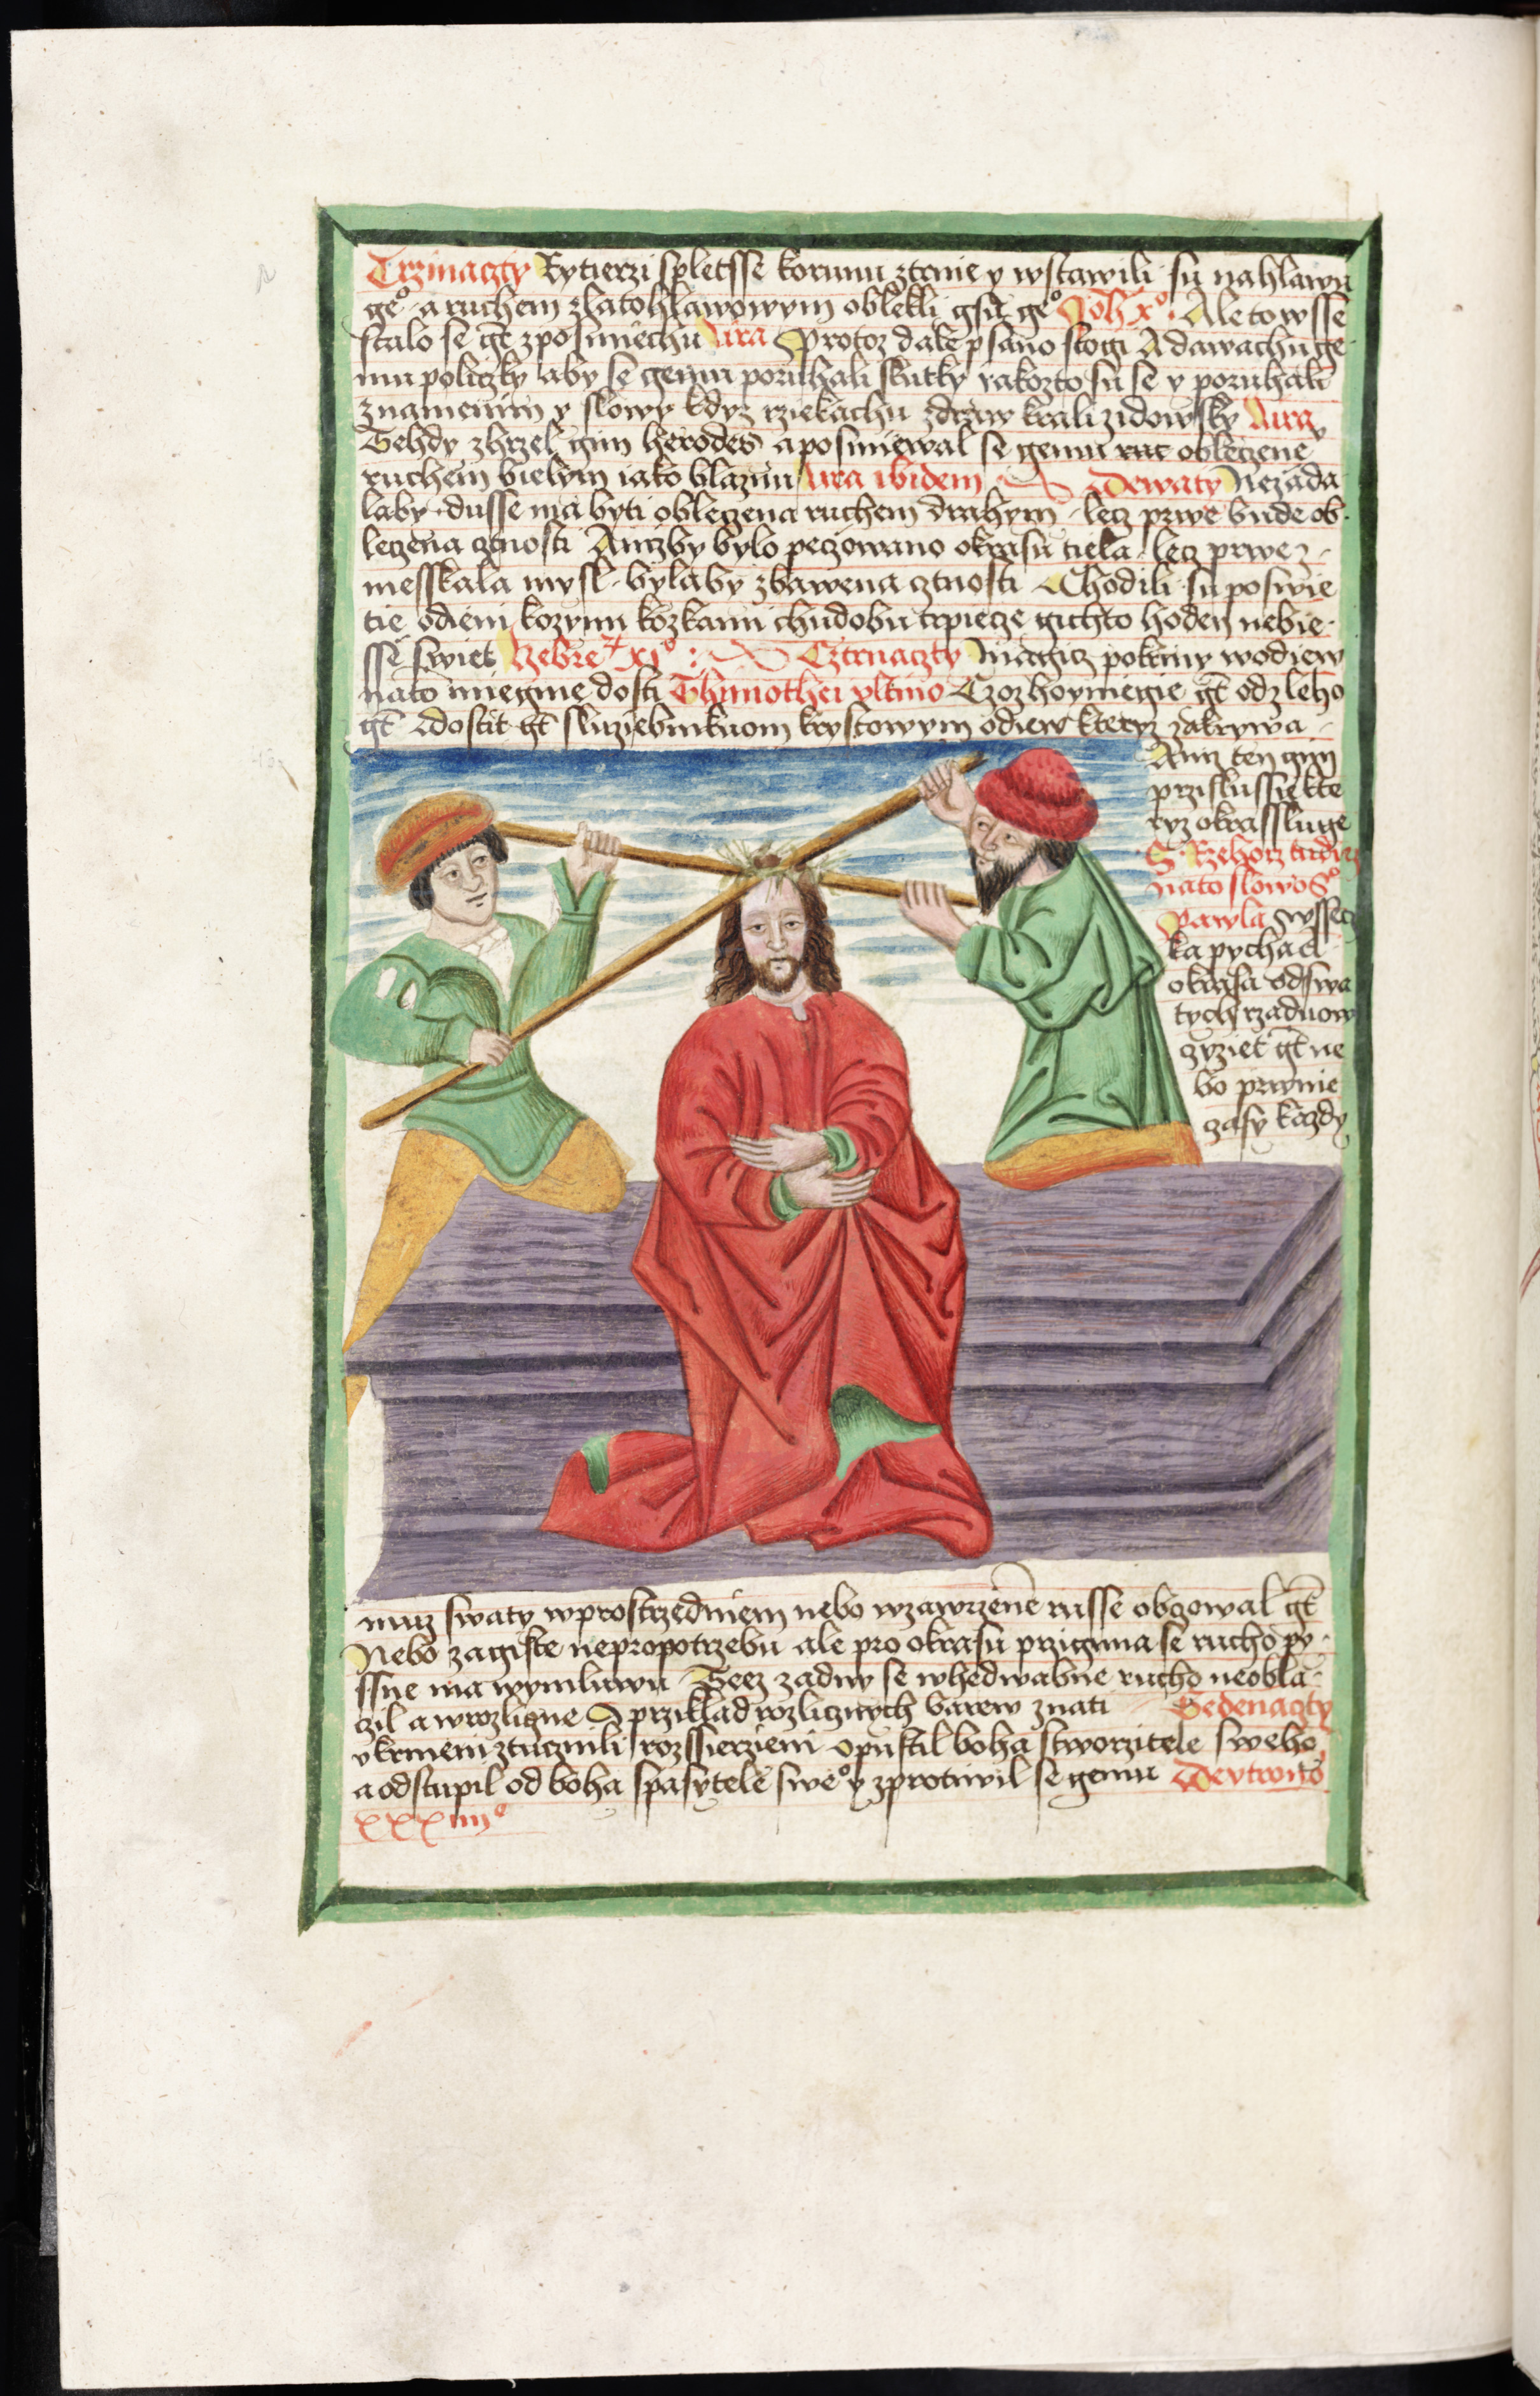 Trzinaczty Rytierzi spletsse korunu ztrnie y wstawili su nahlawu
geᵒ a ruchem zlatohlawowym oblekli gsu geᵒ Joh xᵒ Ale to wsse
stalo se gt̄ zposmiechu lira Protoz dale psano stogi A dawachu ge
mu policzky aby se gemu poruhali skutky yakozto su se y poruhali
znamenim y slowy kdyz rziekachu zdraw krali zidowsky lira
Tehdy zhrzel gim herodes a posmiewal se gemu rac obleczene
ruchem bielym iako blaznu lira ibidem Dewaty Nezada
laby dusse ma byti obleczena ruchem drahym lecz prwe bude ob
leczena cznosti Anizby bylo peczowano okrasu tiela lecz prwe z
messkala mysl bylaby zbawena cztnosti Chodili su poswie
tie odieni kozymi kozkami chudobu trpiecze gichto hoden nebie
sse swiet Zebre xiᵒ Cztrnaczty Magicz pokrmy wodiew
nato miegme dosti Thimothei vltimo Czoz hoyniegie gt̄ odzleho
gt̄ Dostit gt̄ sluziebnikuom krystowym odiew kteryz zakrywa
Aniz ten gim
przislussie kte
ryz okrassluge
S Rzehorz tudiz
nato slowo Sᵒ
Pawla wssec
ka pycha a
okrasa od swa
tych rzaduow
czyziet gt̄ ne
bo prwnie
zasy kazdy
muz swaty wprostrzedniem nebo wzawrzene russe obcowal gt̄
Nebo zagiste nepropotrzebu ale pro okrasu przigima se rucho py
ssne ma wymluwu Teez zadny se whedwabne rucho neobla
czil a wrozlicne S przikladrozlicznych barew znati Gedenaczty
vkrmem ztucznili rozssierzieni opustil boha stworzitele sweho
a odstupil od boha spasytele sweᵒ y zprotiwil se gemu Devtrniᵒ
xxxiiiiᵒ